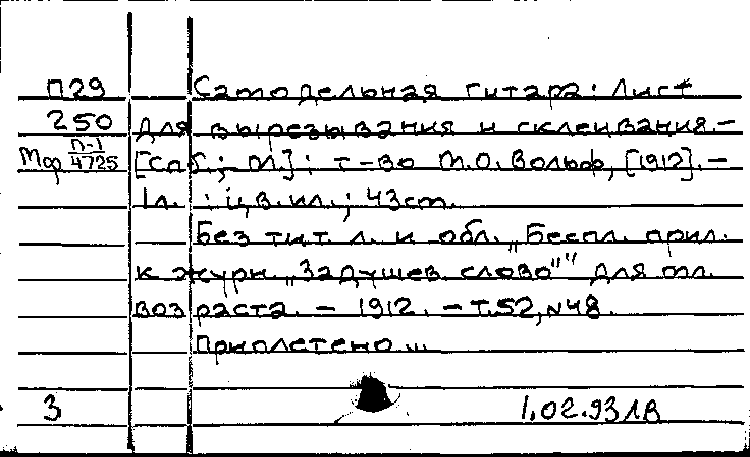 П29 Самодельная гитара: Лист
250 для вырезывания и склеивания. –
П-1
4725 [Спб.; М.]: т-во М.О. Вольф, [1912]. –
1л. : цв. ил.; 43см.
Без тит. л. и обл. „Беспл. прил.
к журн. „Задушев. слово"" для мл.
возраста. – 1912. – Т.52, №48.
Приплетено...
3 1.02.93